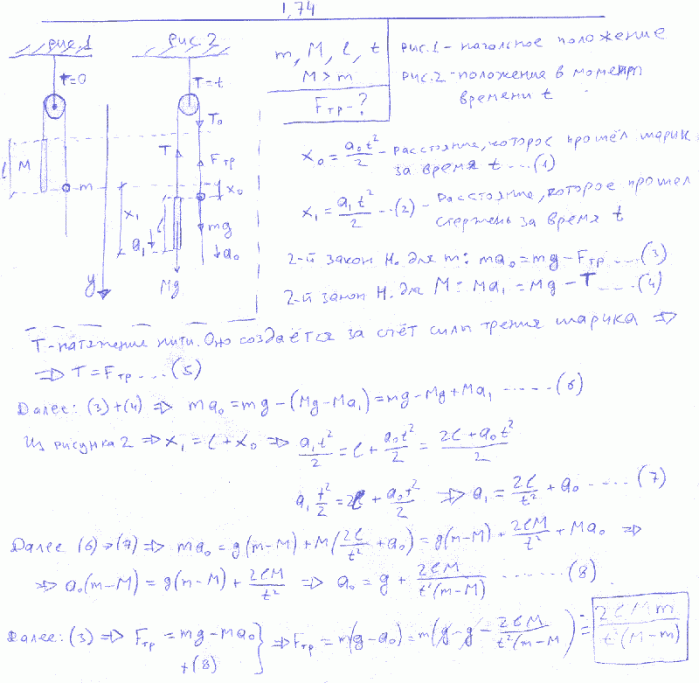 1,74
рис.1
рис.2
T=0
T=t
T₀
T
Fтр
l
M
m
x₀
x₁
a₁
mg
a₀
y
Mg
m, M, l, t
M > m
Fтр - ?
рис.1 - начальное положение
рис.2 - положение в момент
времени t
x₀ = a₀t²/2 - расстояние, которое прошёл шарик
за время t ...(1)
x₁ = a₁t²/2 ...(2) - расстояние, которое прошел
стержень за время t
2-й закон Н. для m: ma₀ = mg - Fтр ...(3)
2-й закон Н. для M: Ma₁ = Mg - T ...(4)
T - натяжение нити. Оно создаётся за счёт силы трения шарика ⇒
⇒ T = Fтр ...(5)
Далее: (3)+(4) ⇒ ma₀ = mg - (Mg - Ma₁) = mg - Mg + Ma₁ ...... (6)
Из рисунка 2 ⇒ x₁ = l + x₀ ⇒ a₁t²/2 = l + a₀t²/2 = (2l + a₀t²)/2
a₁ t²/2 = 2l + a₀t²/2 ⇒ a₁ = 2l/t² + a₀ ..... (7)
Далее (6)→(7) ⇒ ma₀ = g(m-M) + M(2l/t² + a₀) = g(m-M) + 2lM/t² + Ma₀ ⇒
⇒ a₀(m-M) = g(m-M) + 2lM/t² ⇒ a₀ = g + 2lM/(t²(m-M)) ....... (8)
Далее: (3) + (8) } ⇒ Fтр = mg - ma₀ ⇒ Fтр = m(g-a₀) = m(g - g - 2lM/(t²(m-M))) = 2lMm/(t²(M-m))